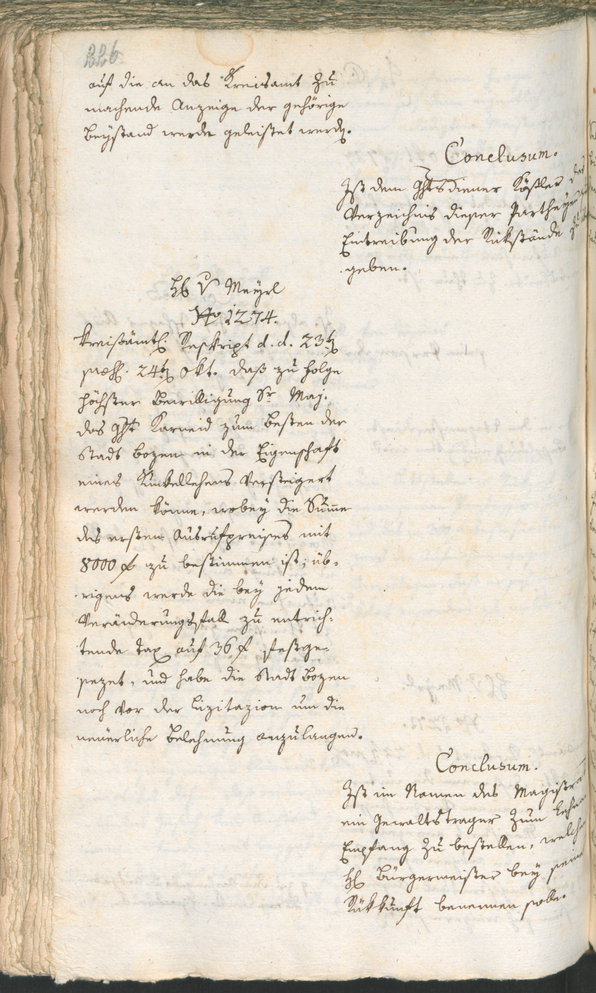 226
auf die an das Kreisamt zu
machende Anzeige der gehörige
Beystand werde geleistet werdn.
Conclusum.
Ist dem Ghtsdiener Köszler das
Verzeichnis dieser Partheyen
Eintreibung der Rükstände zu
geben.
H. v Mayrl
No 1274.
Kreisämtl. Reskript d. d. 23t
praes. 24t Okt. daß zu folge
höchster Bewilligung Sr Maj.
das Ght Karneid zum Besten der
Stadt bozen in der Eigenschaft
eines Kunkellehens Versteigert
werden könne, wobey die Summe
des ersten Ausrufpreises mit
8000 f zu bestimmen ist; üb-
rigens werde die bey jedem
Veränderungsfall zu entrich-
tende Tax auf 36 f festge-
sezet, und habe die Stadt Bozen
noch vor der Lizitazion um die
neuerliche Belehnung anzulangen.
Conclusum.
Ist im Namen des Magistra
ein Gewaltstrager zum Lehen
Empfang zu bestellen, welchen
H. Bürgermeister bey seiner
Rükkunft benennen solle.